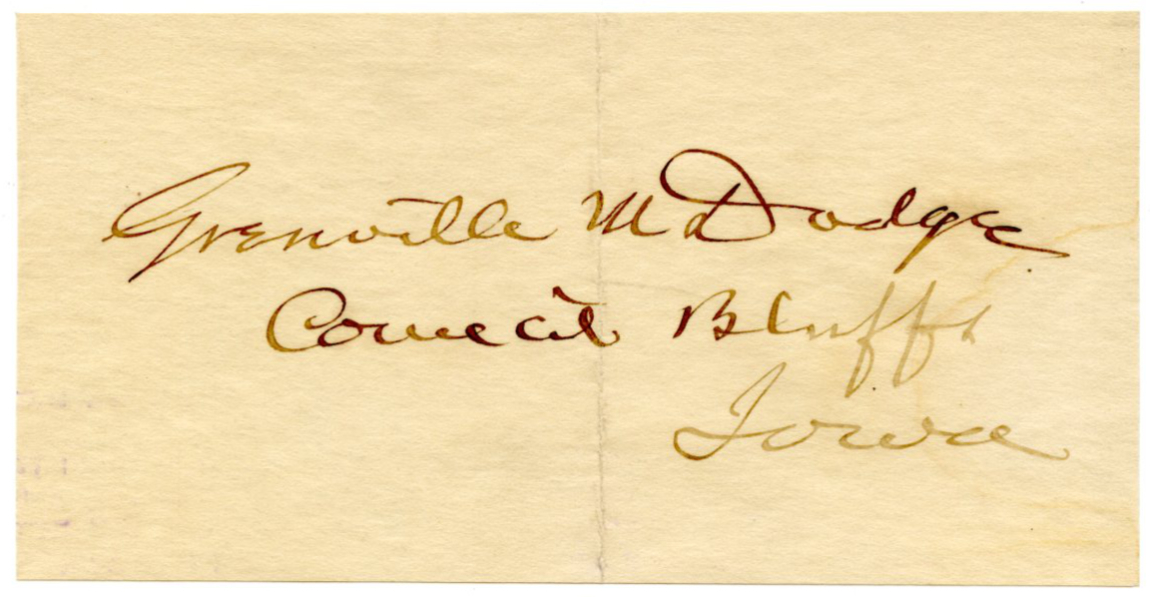 Grenville M Dodge
Council Bluffs
Iowa